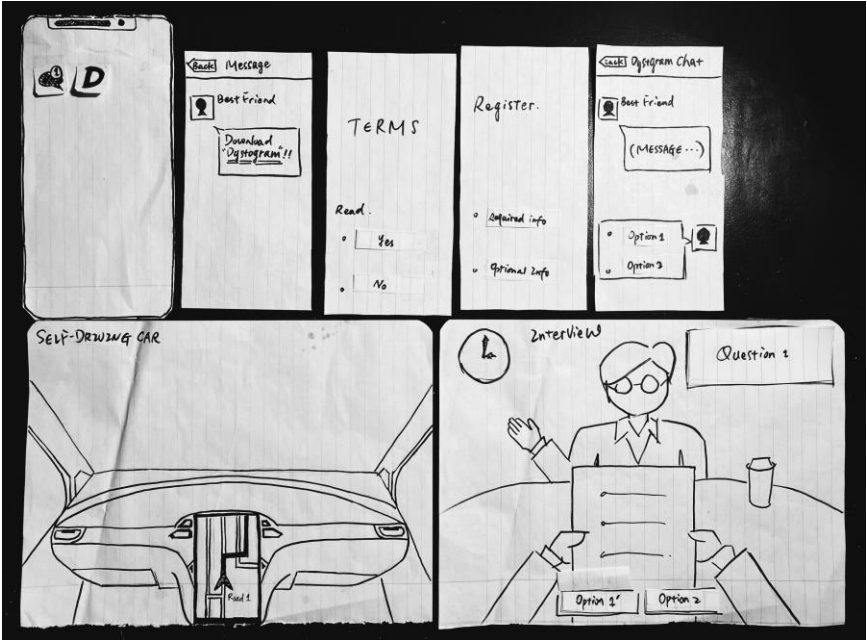 1
D
Back Message
Best Friend
Download
"Dystogram"!!
TERMS
Read.
Yes
No
Register.
Required info
Optional Info
Back Dystogram Chat
Best Friend
(MESSAGE...)
Option 1
Option 2
SELF-DRIVING CAR
Road 1
Interview
Question 1
Option 1'
Option 2